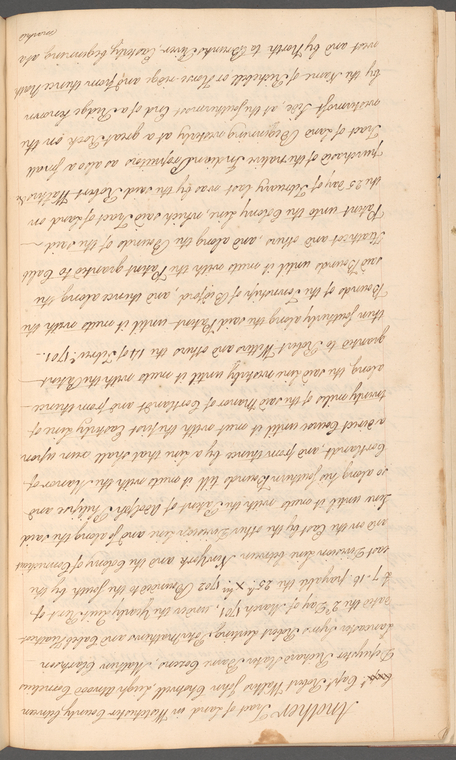 Another Tract of Land in Westchester County, between
Capt Robert Walter John Chollwell, Leigh Atwood Cornelius
Depeyster Richard Slater Barne Cosens Mathew Clarkson
Lancaster Syms Robert Lurting, Peter Mathews and Caleb Heathcot
Dated the 2d Day of March 1701, under the Yearly Quit Rent of
£ 7.10 payable the 25th Xbr 1702 Bounded to the South by the
east Division Line between New York and the Colony of Connecticut
and on the East by the other Division Line and so along the said
Line until it meets with the Patent of Adolph Philipse and
so along his southern Bounds till it meets with the Manor of
Cortlandt, and from thence by a line that shall run upon
a direct Course until it meet with the first Easterly line of
twenty miles of the said Manor of Cortlandt and from thence
along the said line westerly until it meets with the Patent
granted to Robert Witters and others the 14 of Febru'y 1701
then Southerly along the said Patent until it meets with the
Bounds of the Township of Bedford, and thence along the
said Bounds until it meets with the Patent granted to Caleb
Heathcot and others, and along the Bounds of the said
Patent unto the Colony Line, which said Tract of Land on
the 25 day of February last was by the said Robert Walters &c
purchased of the native Indian Proprietors as also a small
Tract of Land Beginning westerly at a great Rock on the
by the Name of Richbell or Horse ridge and from thence North
west and by North to Brunks River Easterly beginning at a
marked